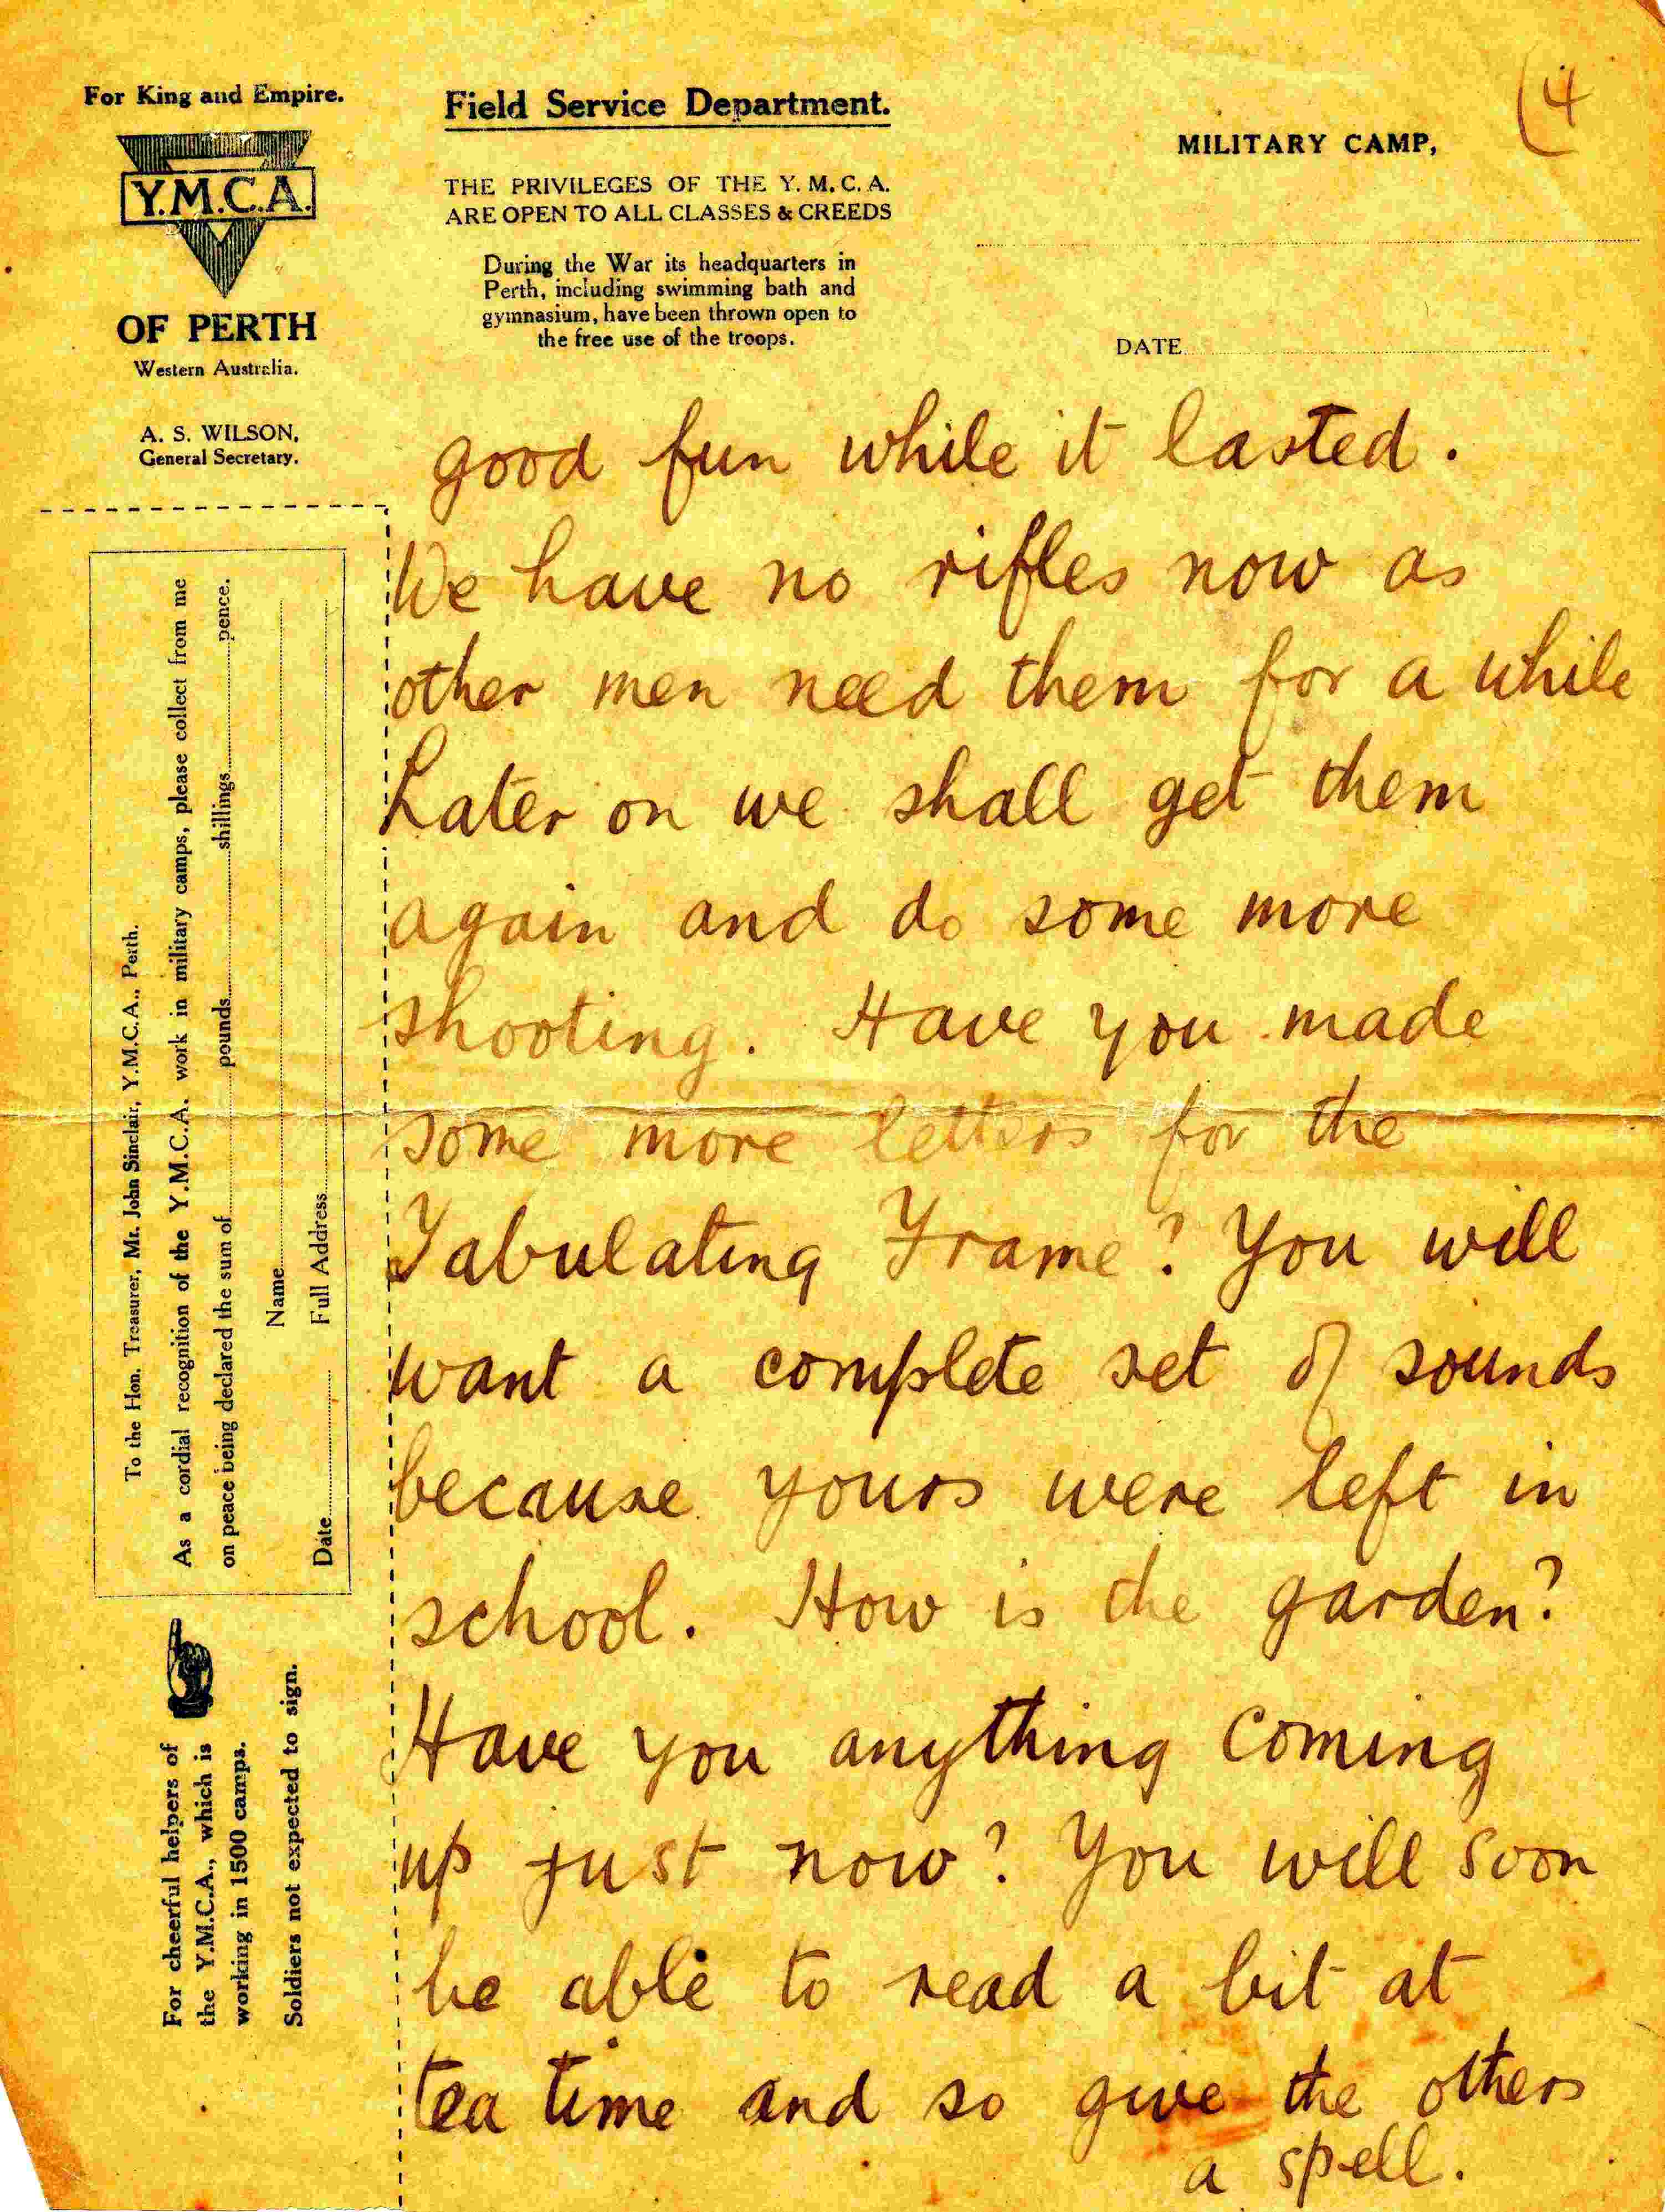 For King and Empire.
Y.M.C.A.
OF PERTH
Western Australia.
A. S. WILSON,
General Secretary.
Field Service Department.
THE PRIVILEGES OF THE Y. M. C. A.
ARE OPEN TO ALL CLASSES & CREEDS
During the War its headquarters in
Perth, including swimming bath and
gymnasium, have been thrown open to
the free use of the troops.
4
MILITARY CAMP,
DATE
To the Hon. Treasurer, Mr. John Sinclair, Y.M.C.A., Perth.
As a cordial recognition of the Y.M.C.A. work in military camps, please collect from me
on peace being declared the sum of pounds shillings pence.
Name
Date Full Address
For cheerful helpers of
the Y.M.C.A., which is
working in 1500 camps.
Soldiers not expected to sign.
good fun while it lasted.
We have no rifles now as
other men need them for a while
Later on we shall get them
again and do some more
shooting. Have you made
some more letters for the
Tabulating Frame? You will
want a complete set of sounds
because yours were left in
school. How is the garden?
Have you anything coming
up just now? You will soon
be able to read a bit at
tea time and so give the others
a spell.